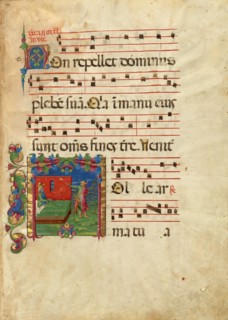 Non repellet dominus
plebē suā. Q̄a i manu eius
sunt om̄s fines t̄re. Venit
ol le ar
ma tu a